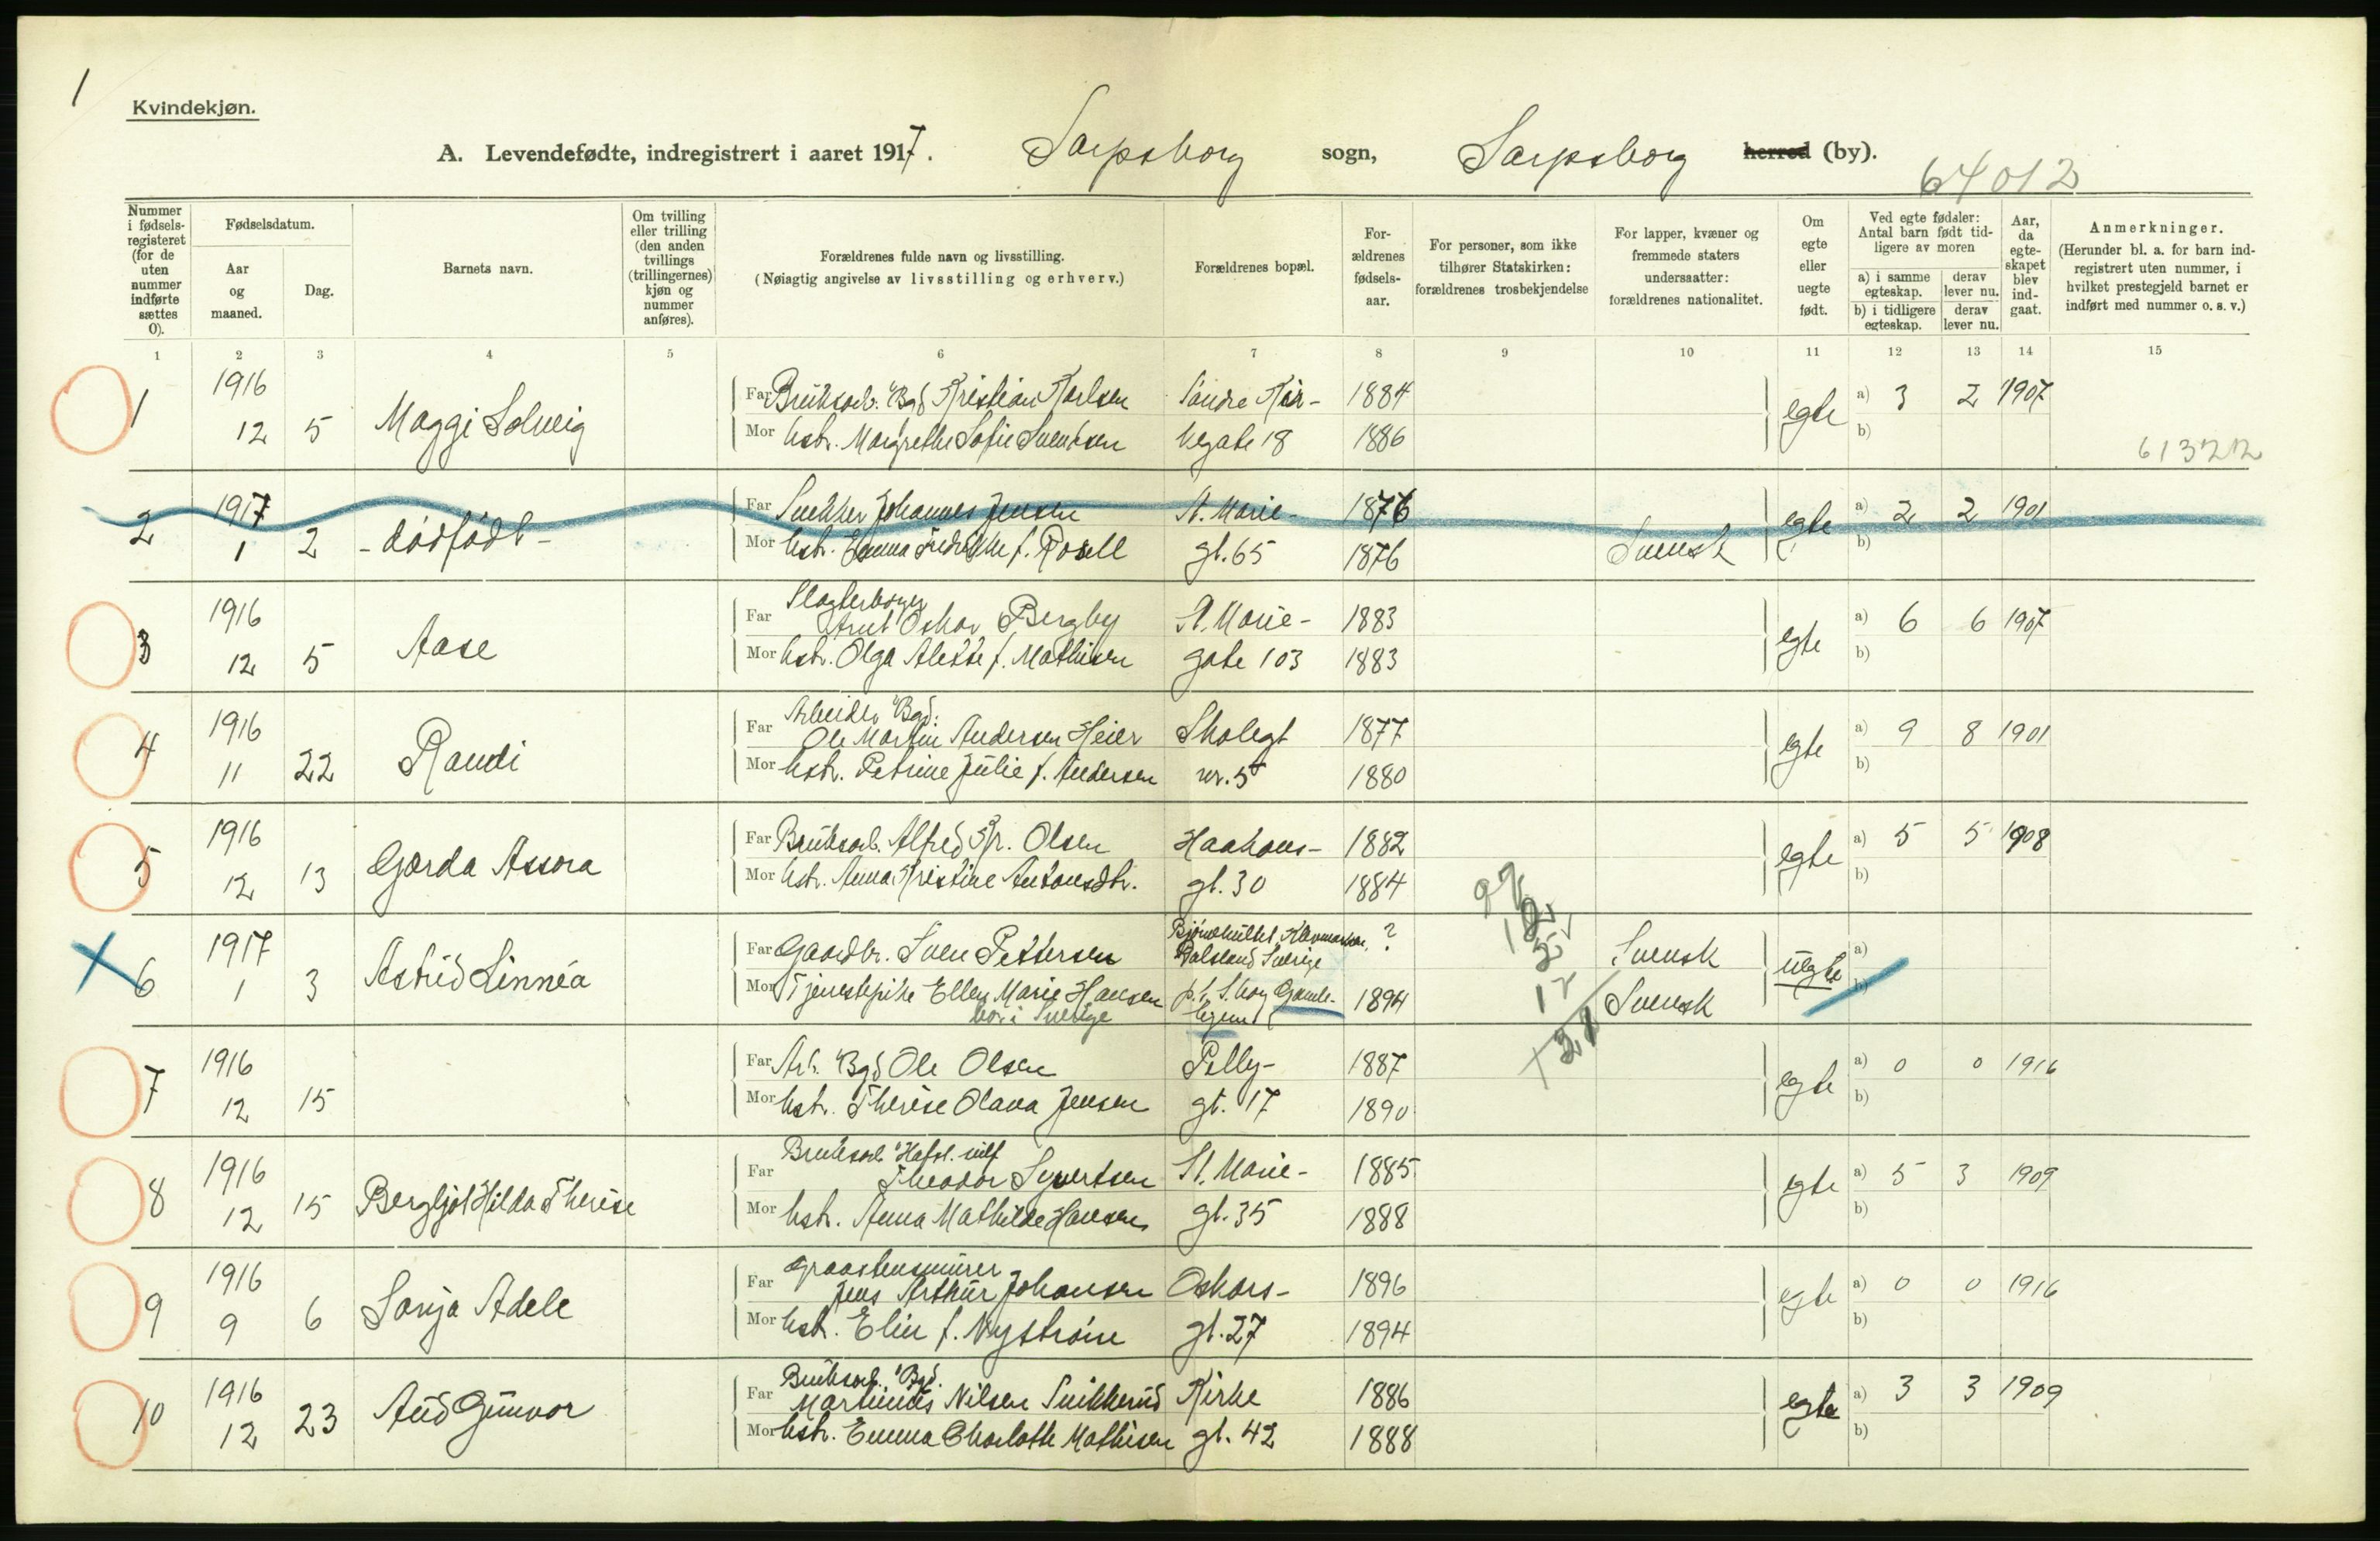 1
Kvindekjøn.
A. Levendefødte, indregistrert i aaret 1917. Sarpsborg sogn, Sarpsborg herred (by).
64012
Nummer i fødsels-registeret (for de uten nummer indførte sættes 0).
Fødselsdatum.
Aar og maaned.
Dag.
Barnets navn.
Om tvilling eller trilling (den anden tvillings (trillingernes) kjøn og nummer anføres).
Forældrenes fulde navn og livsstilling.
(Nøiagtig angivelse av livsstilling og erhverv.)
Forældrenes bopæl.
For-ældrenes fødsels-aar.
For personer, som ikke tilhører Statskirken: forældrenes trosbekjendelse
For lapper, kvæner og fremmede staters undersaatter: forældrenes nationalitet.
Om egte eller uegte født.
Ved egte fødsler: Antal barn født tid-ligere av moren
a) i samme egteskap.
derav lever nu.
b) i tidligere egteskap.
derav lever nu.
Aar, da egte-skapet blev ind-gaat.
Anmerkninger.
(Herunder bl. a. for barn ind-registrert uten nummer, i hvilket prestegjeld barnet er indført med nummer o. s. v.)
1 2 3 4 5 6 7 8 9 10 11 12 13 14 15
1916
Far Bruksarb. Bgd Kristian Karlsen Søndre Kir- 1884 a) 3 2 1907
1 12 5 Maggi Solveig egte
Mor hstr. Margrethe Sofie Svendsen kegate 18 1886 b)
61322
1917
Far Snekker Johannes Jensen St. Marie- 1876 a) 2 2 1901
2 1 2 - dødfødt - egte
Mor hstr. Emma Fredrikke f. Rosell gt. 65 1876 Svensk b)
1916 Slagterborger
Far Arnt Oskar Bergby St. Marie- 1883 a) 6 6 1907
3 12 5 Aase egte
Mor hstr. Olga Alette f. Mathisen gate 103 1883 b)
1916 Arbeider Bgd.
Far Ole Martin Andersen Heier Skolegt 1877 a) 9 8 1901
4 11 22 Randi egte
Mor hstr. Petrine Julie f. Andersen nr. 5 1880 b)
1916
Far Bruksarb. Alfred Kr. Olsen Haakons- 1882 a) 5 5 1908
5 12 13 Gerda Assora egte
Mor hstr. Anna Kristine Antonsdtr. gt. 30 1884 b)
1917
Far Gaardbr. Sven Pettersen Dalsland Sverige ? Svensk a)
6 1 3 Astrid Linnéa uegte
Mor Tjenestepike Ellen Marie Hansen p.t. S.borg Gamle- 1894 Svensk b)
bor i Sverige
1916
Far Arb. Bgd Ole Olsen Pelly- 1887 a) 0 0 1916
7 12 15 egte
Mor hstr. Therese Olava Jensen gt. 17 1890 b)
1916 Bruksarb. Hafsl.
Far Theodor Syvertsen St. Marie- 1885 a) 5 3 1909
8 12 15 Bergljot Hilda Therese egte
Mor hstr. Anna Mathilde Hansen gt. 35 1888 b)
1916 Graastensmurer
Far Jens Arthur Johansen Oskars- 1896 a) 0 0 1916
9 9 6 Sonja Adele egte
Mor hstr. Elin f. Nystrøm gt. 27 1894 b)
1916 Bruksarb. Bgd.
Far Martinius Nilsen Snikkerud Kirke 1886 a) 3 3 1909
10 12 23 Aud Gunvor egte
Mor hstr. Emma Charlotte Mathisen gt. 42 1888 b)